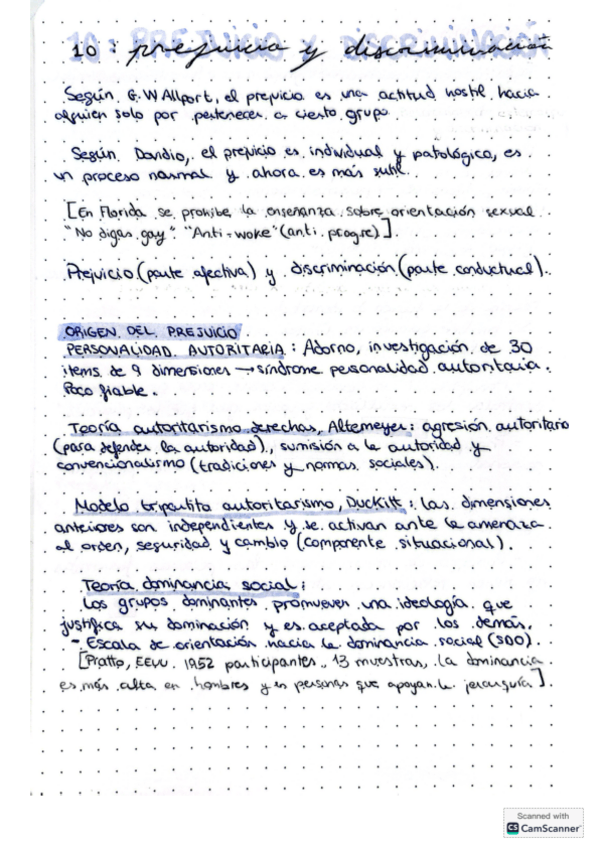 10: prejuicio y discriminación
Según G.W Allport, el prejuicio es una actitud hostil hacia
alguien solo por pertenecer a cierto grupo
Según Dovidio, el prejuicio es individual y patológico, es
un proceso normal y ahora es más sutil.
[En Florida se prohibe la enseñanza sobre orientación sexual
"No digas gay". "Anti-woke" (anti progre)].
Prejuicio (parte afectiva) y discriminación (parte conductual).
ORIGEN DEL PREJUICIO
PERSONALIDAD AUTORITARIA: Adorno, investigación de 30
items de 9 dimensiones → síndrome personalidad autoritaria.
Poco fiable.
Teoría autoritarismo derechas, Altemeyer: agresión autoritario
(para defender la autoridad), sumisión a la autoridad y
convencionalismo (tradiciones y normas sociales).
Modelo tripartito autoritarismo, Duckitt: las dimensiones
anteriores son independientes y se activan ante la amenaza
al orden, seguridad y cambio (componente situacional).
Teoría dominancia social:
Los grupos dominantes promueven una ideología que
justifica su dominación y es aceptada por los demás.
- Escala de orientación hacia la dominancia social (SDO).
[Pratto, EEUU. 1952 participantes, 13 muestras, la dominancia
es más alta en hombres y en personas que apoyan la jerarquía].
Scanned with
CS CamScanner